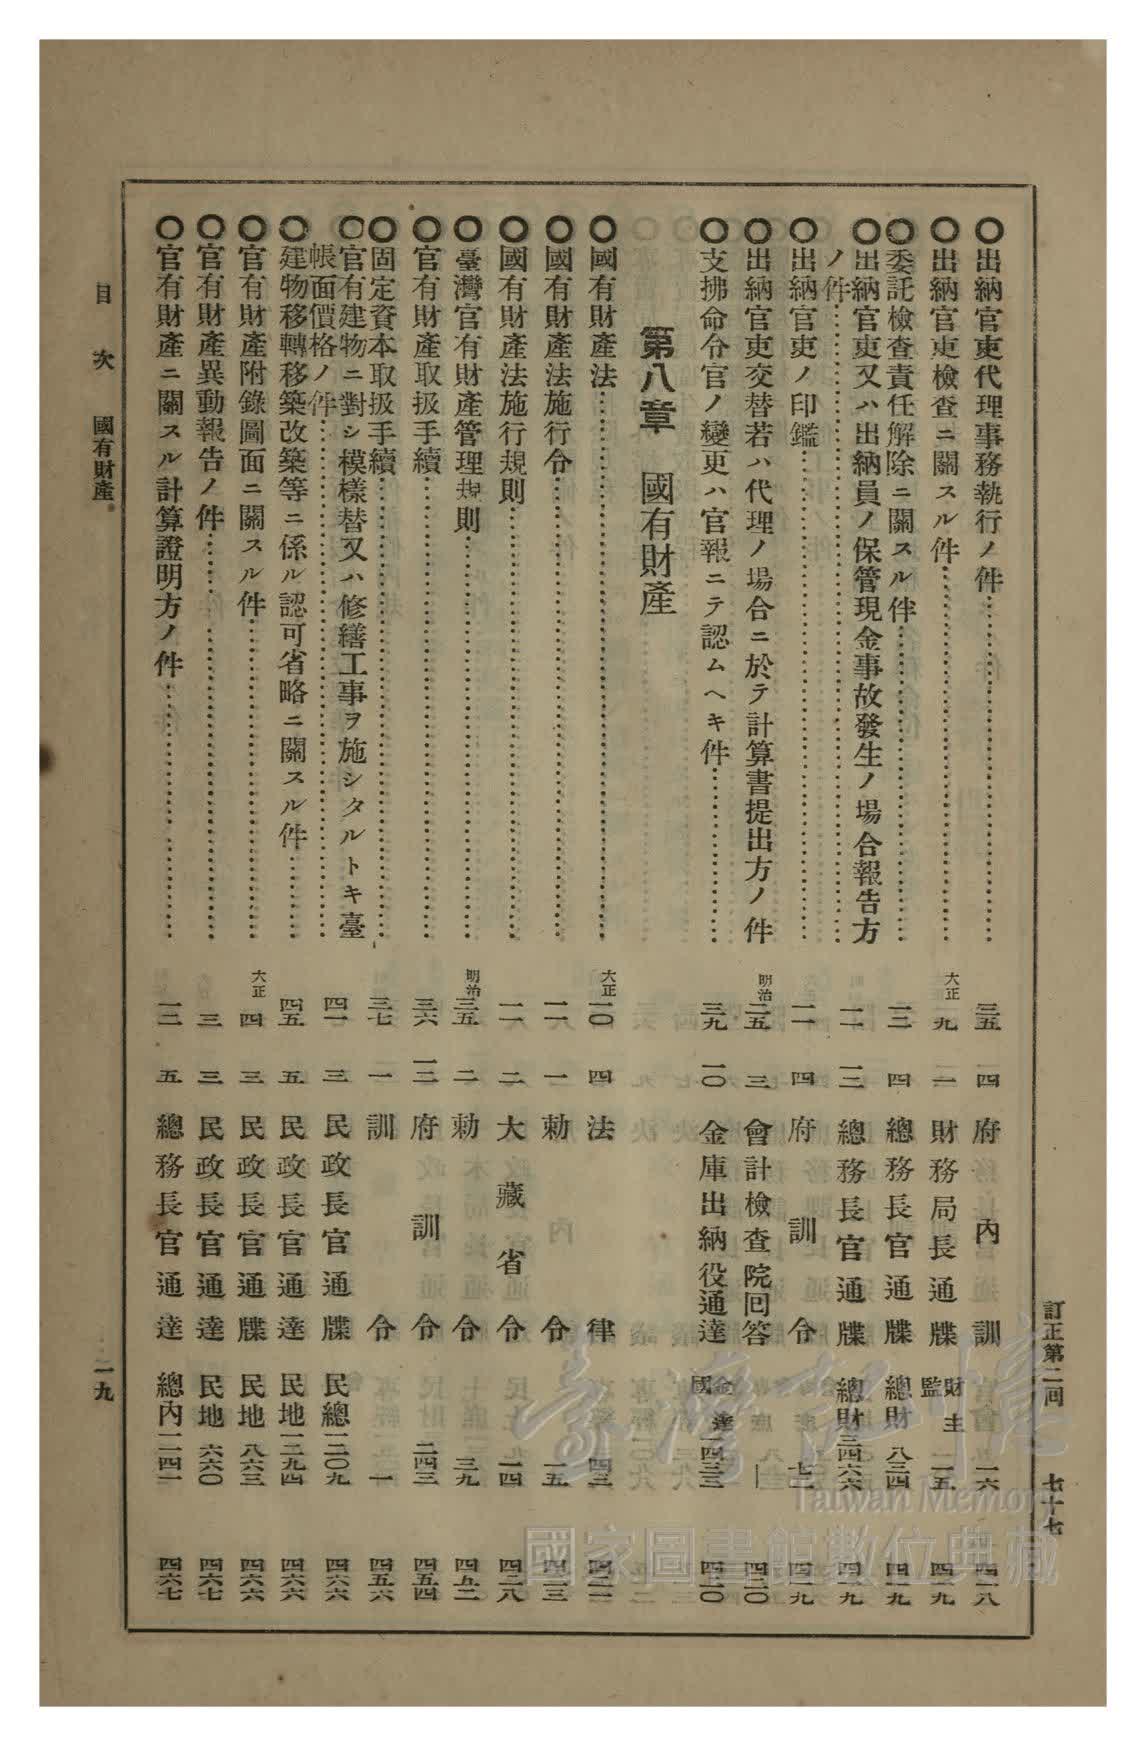 訂正第二回 七十七
○出納官吏代理事務執行ノ件 三五 一四 府內訓 一六 四一八
○出納官吏檢查ニ關スル件 大正 九 一一 財務局長通牒 財主監 一一五 四一九
○委託檢查責任解除ニ關スル件 一三 四 總務長官通牒 總財 八三四 四一九
○出納官吏又ハ出納員ノ保管現金事故發生ノ場合報告方
ノ件 一一 一二 總務長官通牒 總財三四六六 四一九
○出納官吏ノ印鑑 一一 四 府訓令 四一九
○出納官吏交替若ハ代理ノ場合ニ於テ計算書提出方ノ件 明治 二五 三 會計檢查院回答 | 四二〇
○支拂命令官ノ變更ハ官報ニテ認ムヘキ件 三九 一〇 金庫出納役通達 金達國 一四三三 四二〇
第八章 國有財產
○國有財產法 大正 一〇 四 法律 四三 四二一
○國有財產法施行令 一一 一 勅令 一五 四二三
○國有財產法施行規則 一一 二 大藏省令 一四 四二八
○臺灣官有財產管理規則 明治 三五 二 勅令 三九 四五一
○官有財產取扱手續 三六 一二 府訓令 二四三 四五四
○固定資本取扱手續 三七 一 訓令 一 四五六
○官有建物ニ對シ模樣替又ハ修繕工事ヲ施シタルトキ臺
帳面價格ノ件 四一 三 民政長官通牒 民總一二〇九 四六六
○建物移轉移築改築等ニ係ル認可省略ニ關スル件 四五 五 民政長官通達 民地一二九四 四六六
○官有財產附錄圖面ニ關スル件 大正 四 三 民政長官通牒 民地 八六三 四六六
○官有財產異動報告ノ件 三 三 民政長官通達 民地 六六〇 四六七
○官有財產ニ關スル計算證明方ノ件 一二 五 總務長官通達 總內一二四一 四六七
目次 國有財產 一九
臺灣記憶
Taiwan Memory
國家圖書館數位典藏